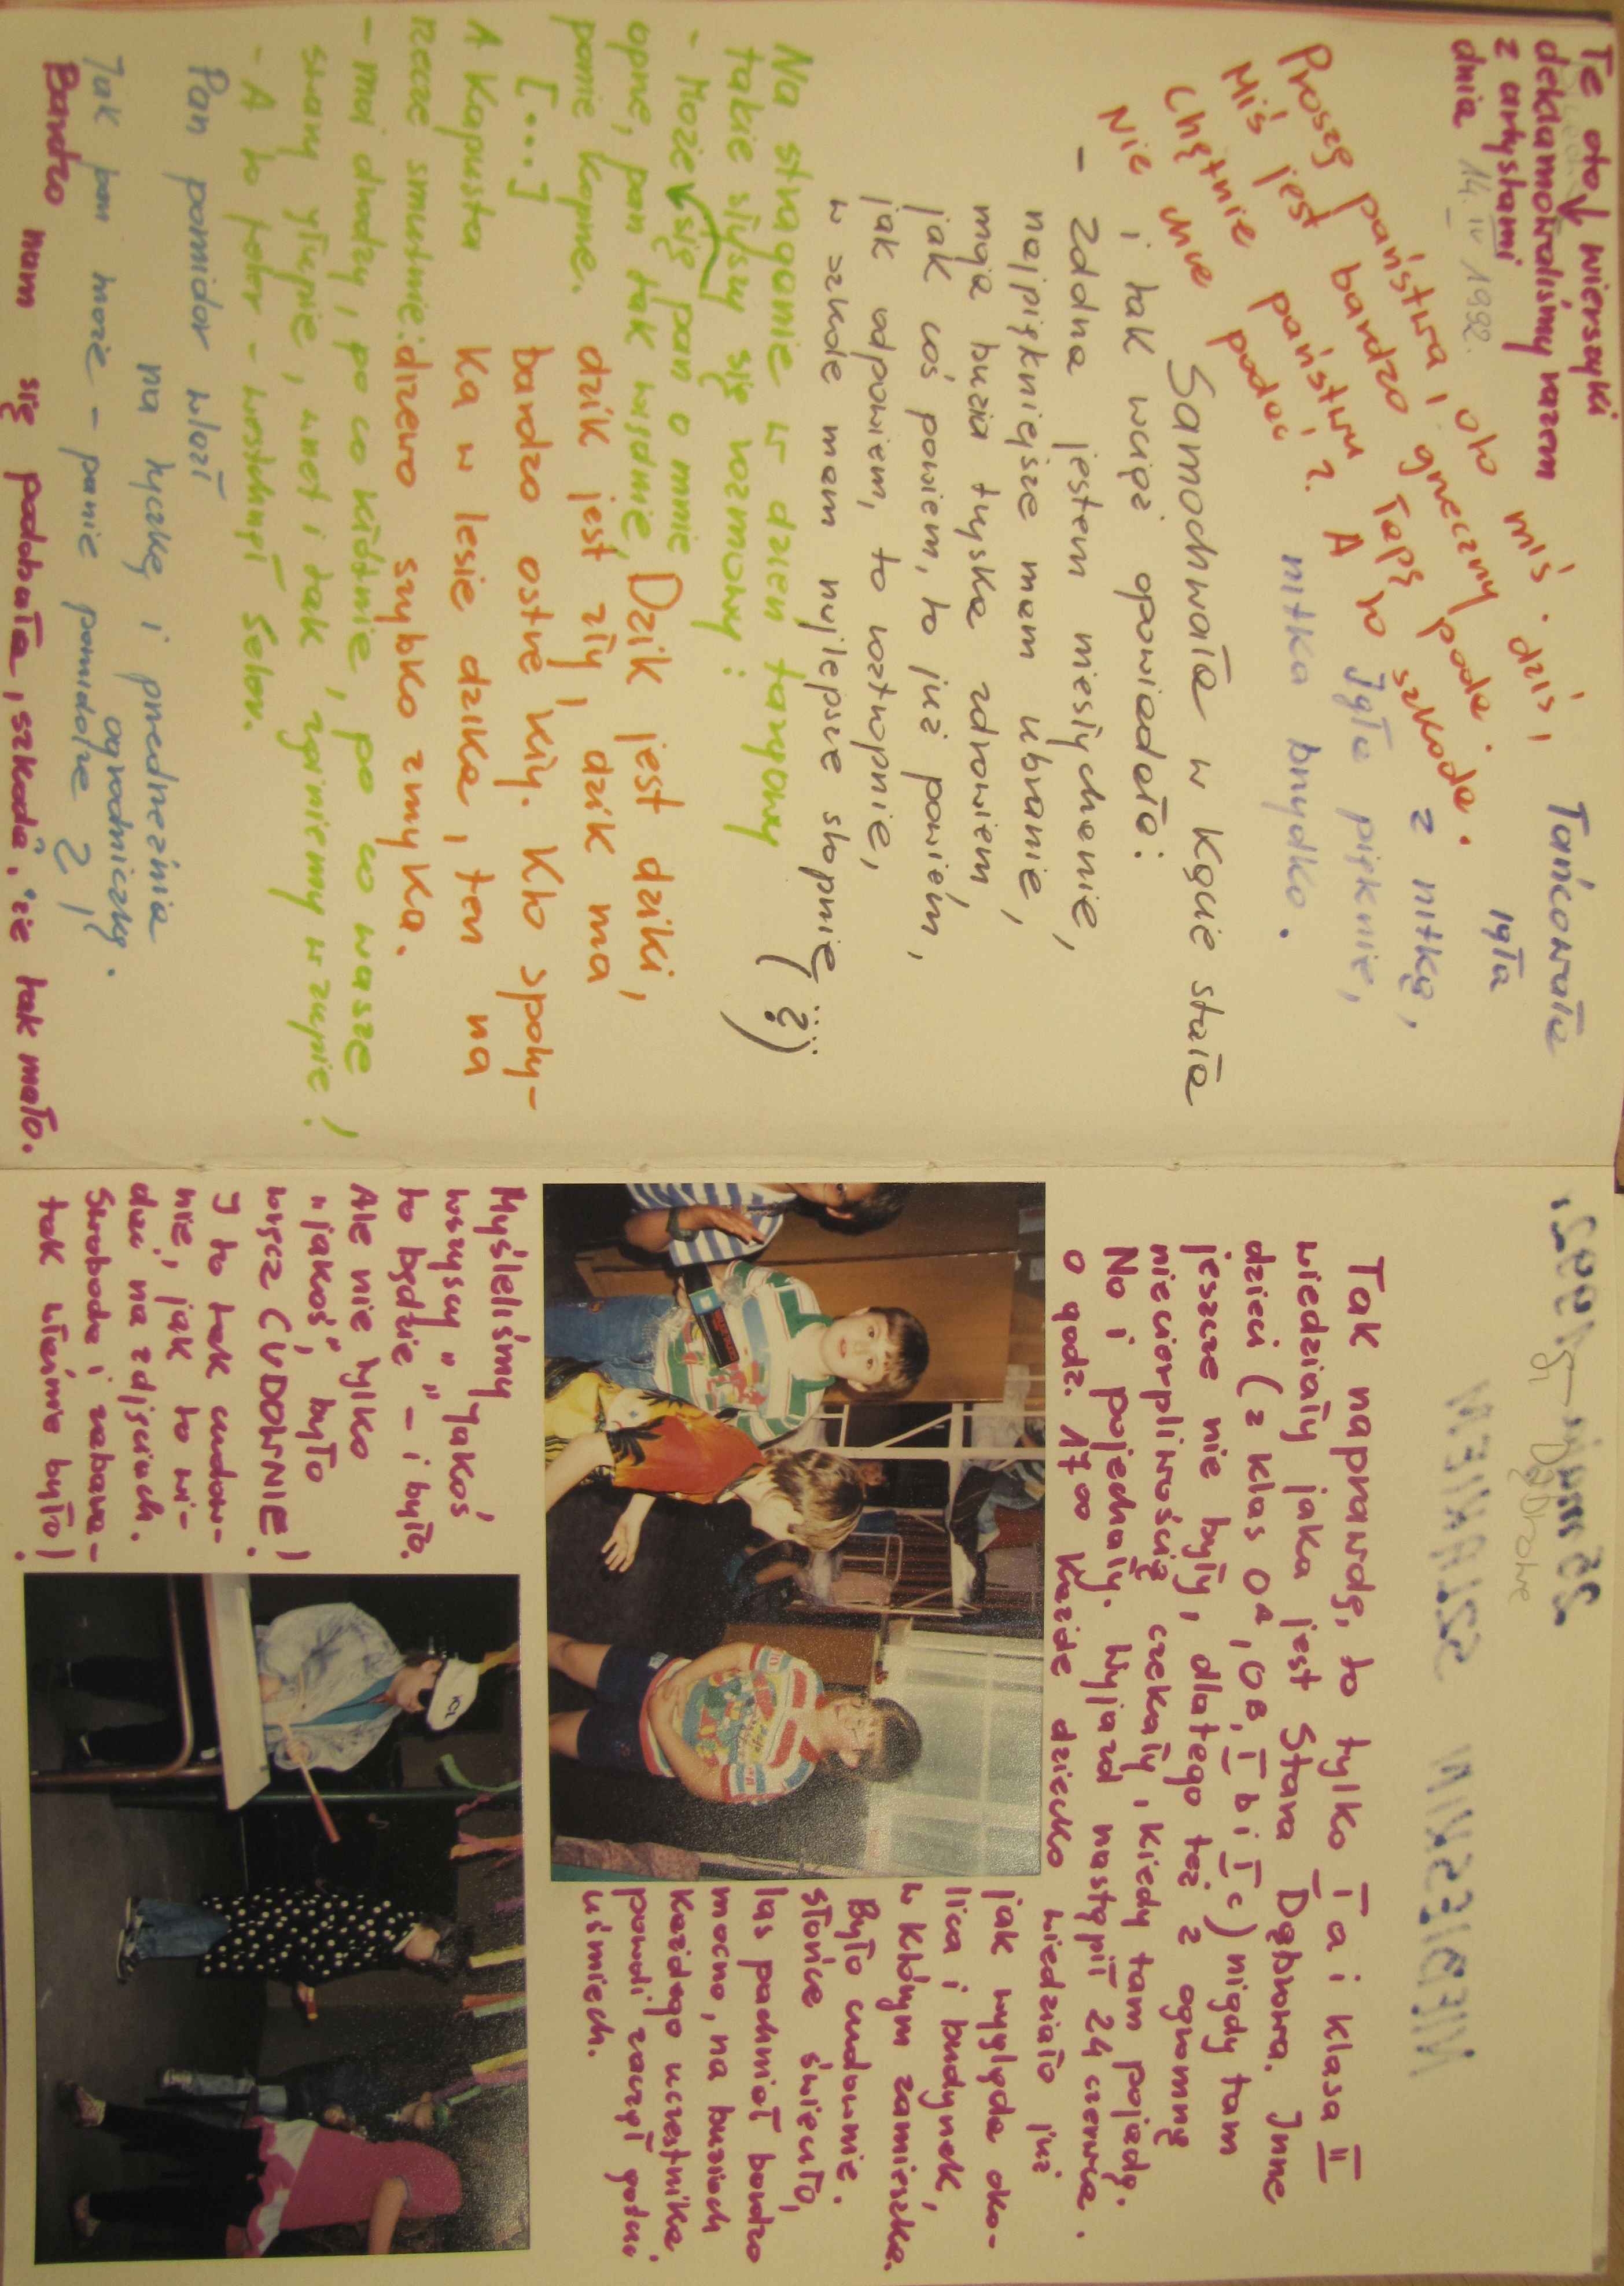 Te oto wierszyki
deklamowaliśmy razem
z artystami
dnia 14. IV 1992.
Proszę państwa, oto miś.
Miś jest bardzo grzeczny dziś,
Chętnie państwu łapę poda.
Nie chce podać? A to szkoda.
Tańcowała
igła
z nitką,
Igła pięknie,
nitka brzydko.
Samochwała w kącie stała
i tak wciąż opowiadała:
- Zdolna jestem niesłychanie,
najpiękniejsze mam ubranie,
moja buzia tryska zdrowiem,
jak coś powiem, to już powiem,
jak odpowiem, to roztropnie,
w szkole mam najlepsze stopnie
(?)
Na straganie w dzień targowy
takie słyszy się rozmowy:
- Może się pan o mnie
oprze, pan tak więdnie,
panie koprze.
[...]
A kapusta
rzecze smutnie:
- moi drodzy, po co kłótnie, po co wasze
swary głupie, wnet i tak zginiemy w zupie!
- A to feler - westchnął seler.
Dzik jest dziki,
dzik jest zły, dzik ma
bardzo ostre kły. Kto spoty-
ka w lesie dzika, ten na
drzewo szybko zmyka.
Pan pomidor wlazł
na tyczkę i przedrzeźnia
ogrodniczkę.
Jak pan może - panie pomidorze?!
Bardzo nam się podobało, szkoda, że tak mało.
25 VI 1992.
Dąbrowe
Tak naprawdę, to tylko I a i klasa II
wiedziały jaka jest Stara Dąbrowa. Inne
dzieci (z klas 0A, 0B, I b i I c) nigdy tam
jeszcze nie były, dlatego też z ogromną
niecierpliwością czekały, kiedy tam pojadą.
No i pojechały. Wyjazd nastąpił 24 czerwca.
o godz. 17oo Każde dziecko wiedziało już
jak wygląda oko-
lica i budynek,
w którym zamieszka.
Było cudownie.
słońce świeciło,
las pachniał bardzo
mocno, na buziach
każdego uczestnika
powoli zaczął gościć
uśmiech.
Myśleliśmy
wszyscy „jakoś
to będzie" - i było.
Ale nie tylko
„jakoś", było
wręcz CUDOWNIE!
I to tak cudow-
nie, jak to wi-
dać na zdjęciach.
Swoboda i zabawa -
tak właśnie było!